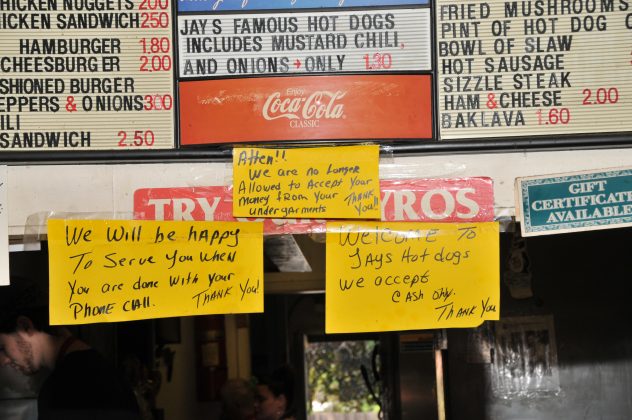 CHICKEN NUGGETS 200
CHICKEN SANDWICH 250
HAMBURGER 1.80
CHEESBURGER 2.00
FASHIONED BURGER
PEPPERS & ONIONS 300
SANDWICH 2.50
JAYS FAMOUS HOT DOGS
INCLUDES MUSTARD CHILI,
AND ONIONS → ONLY 1.30
Enjoy
Coca-Cola
CLASSIC
FRIED MUSHROOMS
PINT OF HOT DOG
BOWL OF SLAW
HOT SAUSAGE
SIZZLE STEAK
HAM & CHEESE 2.00
BAKLAVA 1.60
GIFT
CERTIFICATES
AVAILABLE
TRY
YROS
Atten!!
We are no longer
Allowed to Accept Your
Money from Your
undergarments THANK
You!!
We Will be hAPPY
To Serve You When
You are done with your
Phone CAll. THANK You!
Welcome To
JAYS Hot dogs
We accept
CAsh only.
THANK You